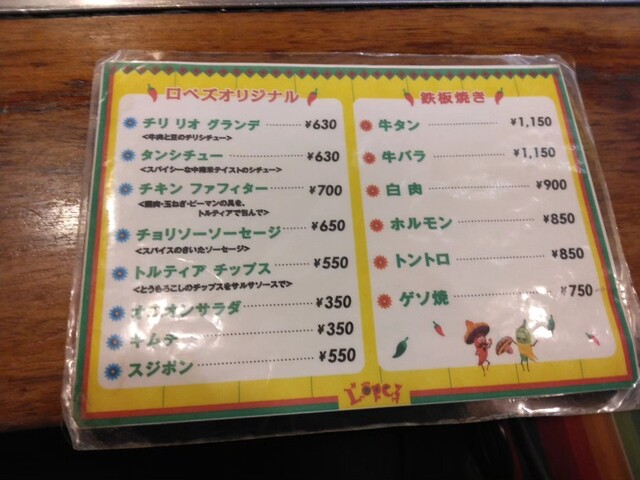 ロペズオリジナル
チリ リオ グランデ ¥630
<牛肉と豆のチリシチュー>
タンシチュー ¥630
<スパイシーな中南米テイストのシチュー>
チキン ファフィター ¥700
<鶏肉・玉ねぎ・ピーマンの具を、
トルティアで包んで>
チョリソーソーセージ ¥650
<スパイスのきいたソーセージ>
トルティア チップス ¥550
<とうもろこしのチップスをサルサソースで>
オニオンサラダ ¥350
キムチ ¥350
スジポン ¥550
鉄板焼き
牛タン ¥1,150
牛バラ ¥1,150
白肉 ¥900
ホルモン ¥850
トントロ ¥850
ゲソ焼 ¥750
Lopez